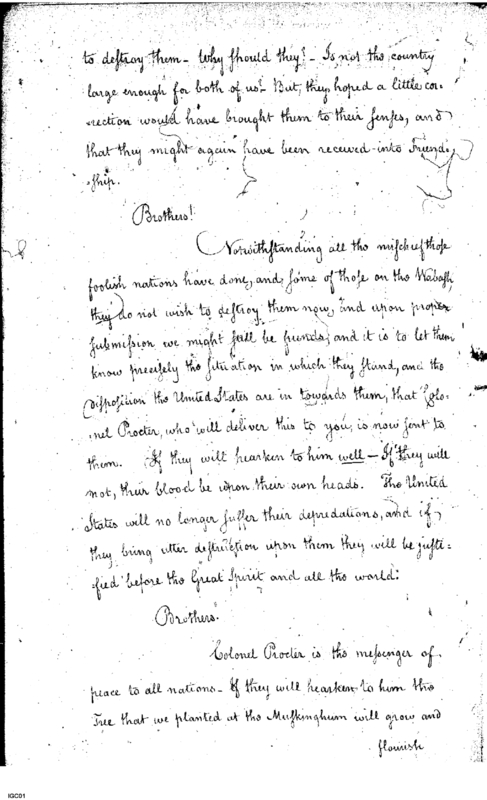 to destroy them – Why should they? – Is not the country
large enough for both of us? But, they hoped a little cor-
-rection would have brought them to their senses, and
that they might again have been received into Friend-
-ship.
Brothers!
Notwithstanding all the mischief those
foolish nations have done, and some of those on the Wabash,
they do not wish to destroy them now, and upon proper
submission we might still be friends; and it is to let them
know precisely the situation in which they stand, and the
disposition the United States are in towards them, that Colo-
-nel Procter, who will deliver this to you, is now sent to
them. If they will hearken to him well – If they will
not, their blood be upon their own heads. The United
States will no longer suffer their depredations, and if
they bring utter destruction upon them they will be justi-
-fied before the Great Spirit and all the world.
Brothers.
Colonel Procter is the messenger of
peace to all nations – If they will hearken to him the
Tree that we planted at the Muskinghum will grow and
flourish
IGC01